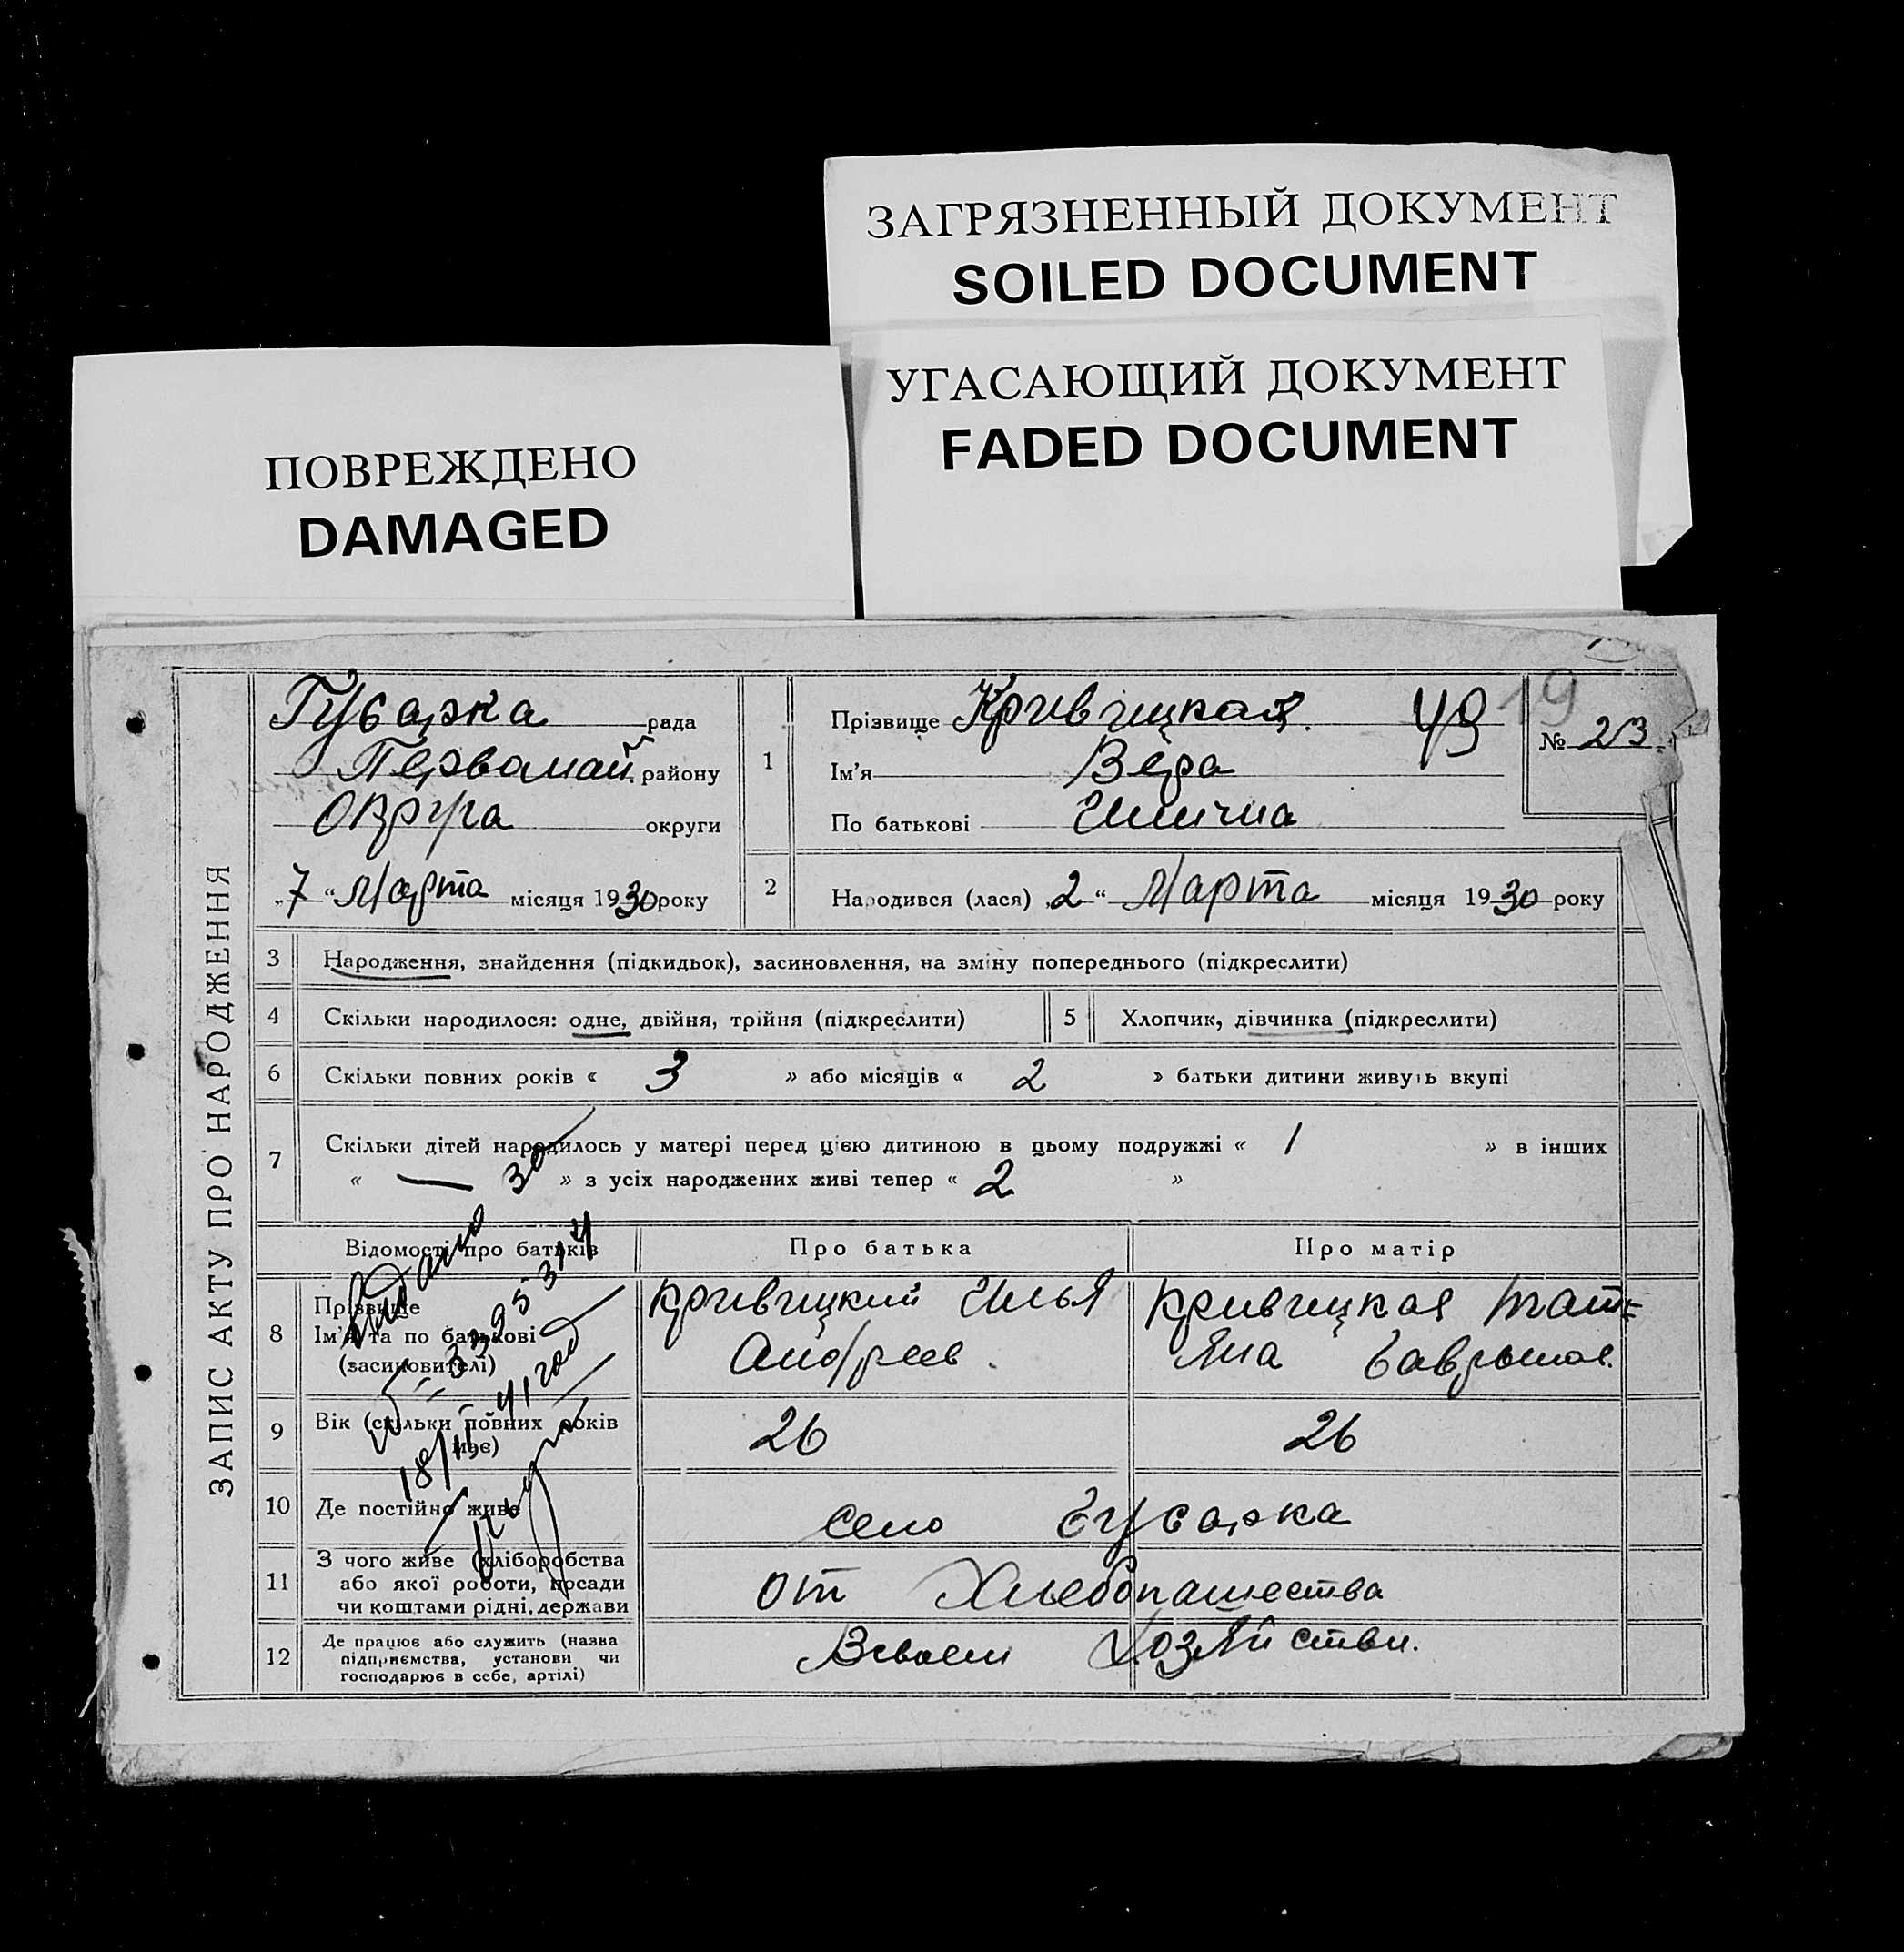 ЗАГРЯЗНЕННЫЙ ДОКУМЕНТ
SOILED DOCUMENT
УГАСАЮЩИЙ ДОКУМЕНТ
FADED DOCUMENT
ПОВРЕЖДЕНО
DAMAGED
ЗАПИС АКТУ ПРО НАРОДЖЕННЯ
Гусарка рада
Первомай. району
Округа округи
„7“ Марта місяця 1930 року
1
Прізвище Кривицкая. 49
Ім'я Вера
По батькові Илична
19
№ 23
2
Народився (лася) „2“ Марта місяця 1930 року
3 Народження, знайдення (підкидьок), засиновлення, на зміну попереднього (підкреслити)
4 Скільки народилося: одне, двійня, трійня (підкреслити)
5 Хлопчик, дівчинка (підкреслити)
6 Скільки повних років « 3 » або місяців « 2 » батьки дитини живуть вкупі
7 Скільки дітей народилось у матері перед цією дитиною в цьому подружжі « 1 » в інших
« — » з усіх народжених живі тепер « 2 »
Відомості про батьків Про батька Про матір
8 Прізвище
Ім'я та по батькові
(засиновителі)
Кривицкий Илья
Андреев.
Кривицкая Тать=
Яна Гаврылов.
9 Вік (скільки повних років
має)
26 26
10 Де постійно живе село Гусарка
11 З чого живе (хліборобства
або якої роботи, посади
чи коштами рідні, держави
от Хлебопашества
12 Де працює або служить (назва
підприємства, установи чи
господарює в себе, артілі)
Всвоем Хозяйстви.
Выдано
18/II-41 год